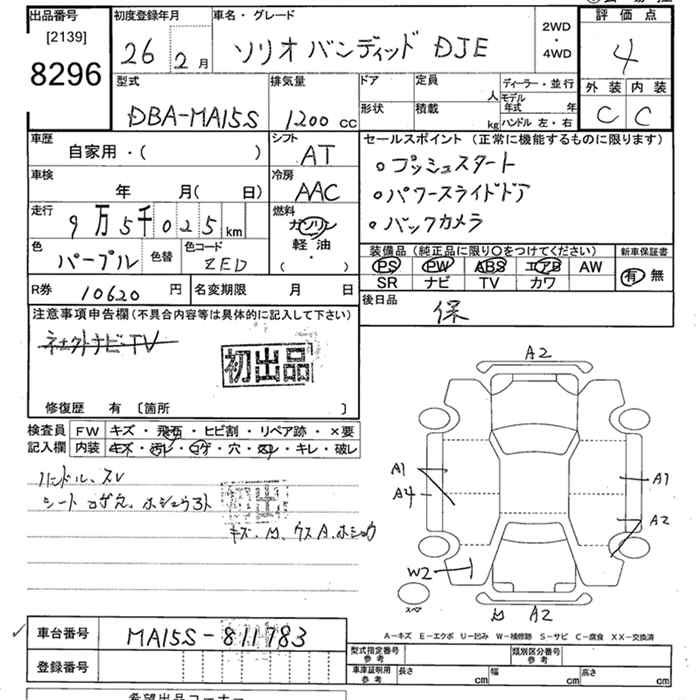 出品番号 初度登録年月 車名・グレード 2WD・4WD 評価点
[2139]
8296
26年 2月 ソリオ バンディッド DJE 4
型式 排気量 ドア 定員 人 ディーラー・並行 外装 内装
DBA-MA15S 1200 CC 形状 積載 kg モデル年式 年 ハンドル 左・右 C C
車歴 自家用・( ) シフト AT セールスポイント (正常に機能するものに限ります)
車検 年 月( 日) 冷房 AAC
。プッシュスタート
。パワースライドドア
。バックカメラ
走行 9万5千025km 燃料 ガソリン 軽油 ( ・ )
色 パープル 色替 色コード ZED
装備品 (純正品に限り○をつけてください) 新車保証書
PS PW ABS エアB AW 有 無
SR ナビ TV カワ
R券 10620 円 名変期限 月 日 後日品 保
注意事項申告欄(不具合内容等は具体的に記入して下さい)
初出品
修復歴 有 [箇所 ]
検査員 FW キズ・飛石・ヒビ割・リペア跡・×要
記入欄 内装 キズ・汚レ・コゲ・穴・スレ・キレ・破レ
ハンドル、スレ
A2
A1
A4
A1
A2
W2
スペア
A2
A−キズ E−エクボ U−凹み W−補修跡 S−サビ C−腐食 XX−交換済
車台番号 MA15S-811783
登録番号
型式指定番号 参考 類別区分番号 参考
車庫証明用 参考 長さ cm 幅 cm 高さ cm
希望出品コーナー